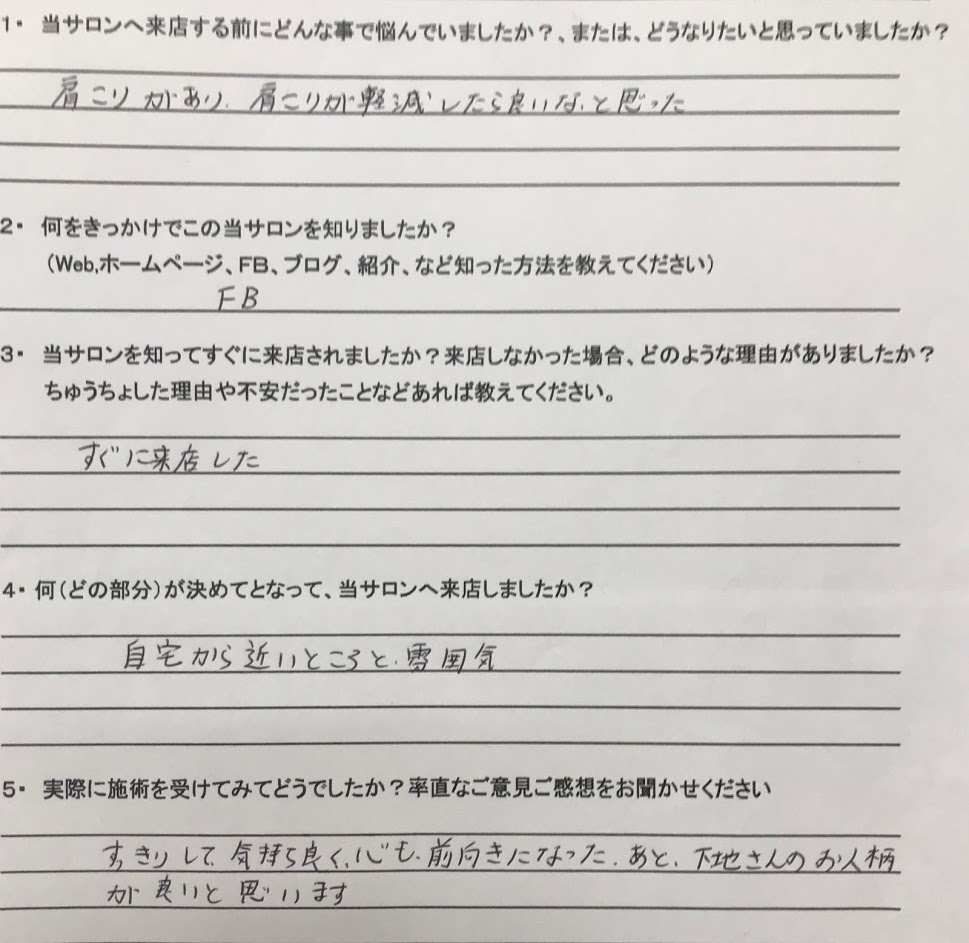 1・ 当サロンへ来店する前にどんな事で悩んでいましたか?、または、どうなりたいと思っていましたか?
肩こりがあり、肩こりが軽減したら良いな、と思った
2・ 何をきっかけでこの当サロンを知りましたか?
(Web,ホームページ、FB、ブログ、紹介、など知った方法を教えてください)
FB
3・ 当サロンを知ってすぐに来店されましたか?来店しなかった場合、どのような理由がありましたか?
ちゅうちょした理由や不安だったことなどあれば教えてください。
すぐに来店した
4・ 何(どの部分)が決めてとなって、当サロンへ来店しましたか?
自宅から近いところと、雰囲気
5・ 実際に施術を受けてみてどうでしたか?率直なご意見ご感想をお聞かせください
すっきりして、気持ち良く、心も、前向きになった、あと、下地さんのお人柄
が良いと思います